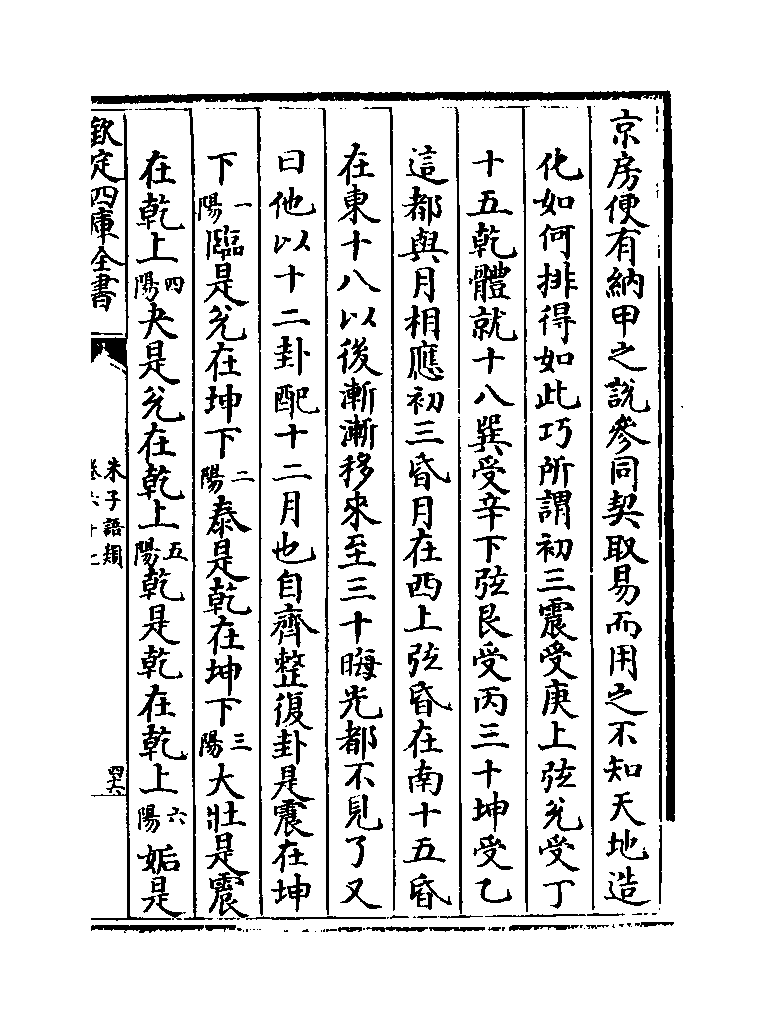 京房便有納甲之說參同契取易而用之不知天地造
化如何排得如此巧所謂初三震受庚上弦兌受丁
十五乾體就十八巽受辛下弦艮受丙三十坤受乙
這都與月相應初三昏月在西上弦昏在南十五昏
在東十八以後漸漸移來至三十晦光都不見了又
曰他以十二卦配十二月也自齊整復卦是震在坤
下一陽臨是兌在坤下二陽泰是乾在坤下三陽大壯是震
在乾上四陽夬是兌在乾上五陽乾是乾在乾上六陽姤是
欽定四庫全書
朱子語類
卷六十七
四十六